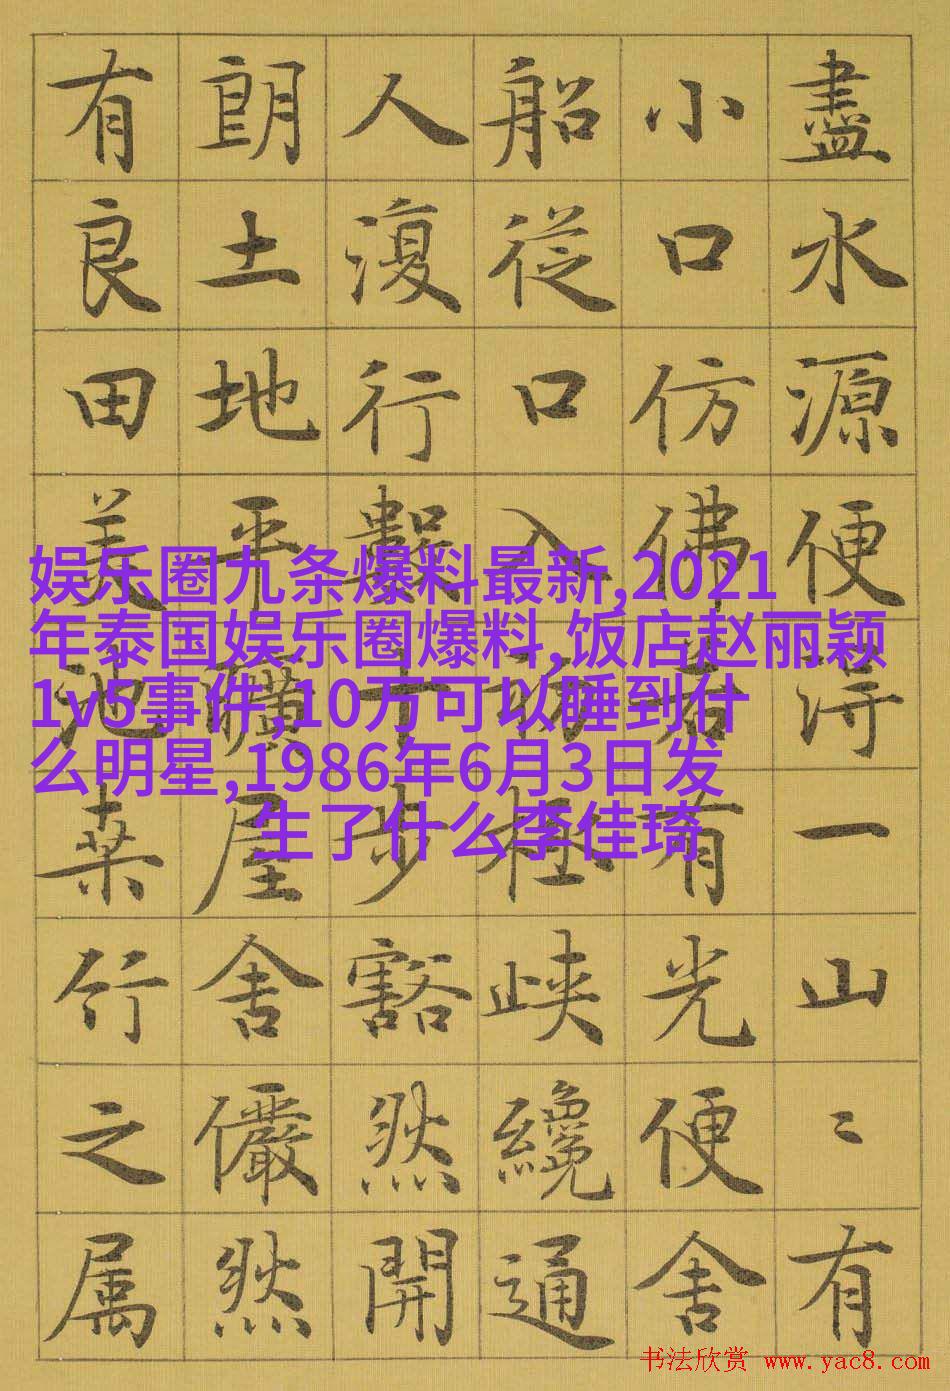 盡水源便淂一山〻有
小口仿佛若有光便舍
船從口入初極峽纔通
人澓行數十步豁然開
朗土地平曠屋舍儼然
有良田美池桒竹之属
娱乐圈九条爆料最新,2021
年泰国娱乐圈爆料,饭店赵丽颖
1v5事件,10万可以睡到什
么明星,1986年6月3日发
生了什么李佳琦
书法欣赏 www.yac8.com